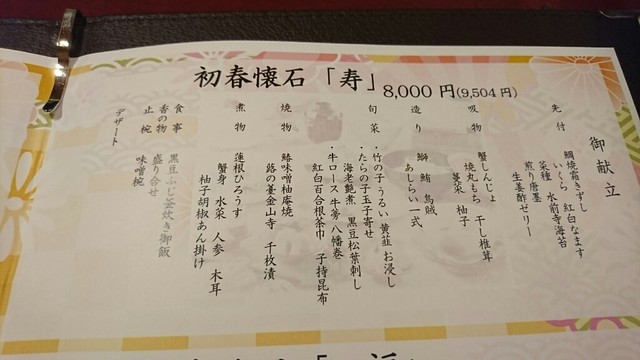 初春懐石「寿」8,000 円(9,504 円)
御献立
先付
鯛焼霜きずし
いくら 紅白なます
菜種 水前寺海苔
煎り唐墨
生姜酢ゼリー
吸物
蟹しんじょ
焼丸もち 干し椎茸
蔓菜 柚子
造り
鰤 鮪 烏賊
あしらい一式
旬菜
・竹の子 うるい 黄韮 お浸し
・たらの子玉子寄せ
海老艶煮 黒豆松葉刺し
・牛ロース牛蒡八幡巻
紅白百合根茶巾 子持昆布
焼物
鰆味噌柚庵焼
蕗の薹金山寺 千枚漬
煮物
蓮根ひろうす
蟹身 水菜 人参 木耳
柚子胡椒あん掛け
食事
黒豆ふじ釜炊き御飯
香の物
盛り合せ
止椀
味噌椀
デザート